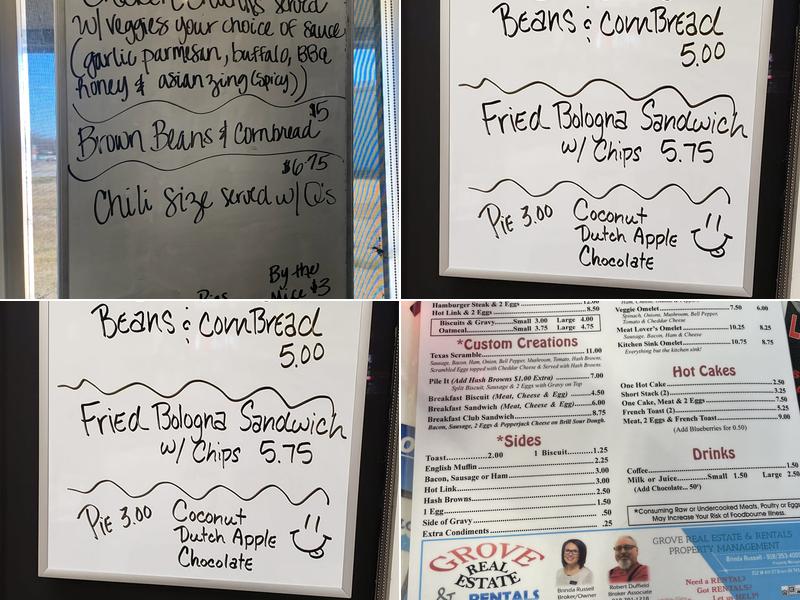 w/ veggies your choice of sauce
(garlic parmesan, buffalo, BBQ
honey & asian zing (spicy))
$5
Brown Beans & Cornbread
$6.75
Chili Size served w/ Q's
By the
$3
Beans & cornBread
5.00
Fried Bologna Sandwich
w/ Chips 5.75
Pie 3.00 Coconut
Dutch Apple
Chocolate
Beans & cornBread
5.00
Fried Bologna Sandwich
w/ Chips 5.75
Pie 3.00 Coconut
Dutch Apple
Chocolate
Hamburger Steak & 2 Eggs 12.00
Hot Link & 2 Eggs
Biscuits & Gravy Small 3.00 Large 4.00
Oatmeal Small 3.75 Large 4.75
*Custom Creations
Texas Scramble 11.00
Sausage, Bacon, Ham, Onion, Bell Pepper, Mushroom, Tomato, Hash Browns,
Scrambled Eggs tapped with Cheddar Cheese & Served with Hash Browns.
Pile It (Add Hash Browns $1.00 Extra) 7.00
Split Biscuit, Sausage & 2 Eggs with Gravy on Top
Breakfast Biscuit (Meat, Cheese & Egg) 4.50
Breakfast Sandwich (Meat, Cheese & Egg) 6.00
Breakfast Club Sandwich 8.75
Bacon, Sausage, 2 Eggs & Pepperjack Cheese on Brill Sour Dough.
*Sides
Toast 2.00 1 Biscuit 1.25
English Muffin 2.25
Bacon, Sausage or Ham 3.00
Hot Link 3.00
Hash Browns 2.50
1 Egg 1.50
Side of Gravy .50
Extra Condiments .25
Veggie Omelet 7.50 6.00
Spinach, Onions, Mushroom, Bell Pepper,
Tomato & Cheddar Cheese
Meat Lover's Omelet 10.25 8.25
Sausage, Bacon, Ham & Cheese
Kitchen Sink Omelet 10.75 8.75
Everything but the kitchen sink!
Hot Cakes
One Hot Cake 2.50
Short Stack (2) 3.25
One Cake, Meat & 2 Eggs 7.50
French Toast (2) 5.25
Meat, 2 Eggs & French Toast 9.00
(Add Blueberries for 0.50)
Drinks
Coffee 1.50
Milk or Juice Small 1.50 Large 2.50
(Add Chocolate.. 50¢)
*Consuming Raw or Undercooked Meats, Poultry or Eggs
May Increase Your Risk of Foodbourne Illness.
GROVE
REAL
ESTATE
& RENTALS
Brinda Russell
Broker/Owner
Robert Duffield
Broker Associate
GROVE REAL ESTATE & RENTALS
PROPERTY MANAGEMENT
Brinda Russell
Need a RENTAL?
Got RENTALS?
Let us HELP!